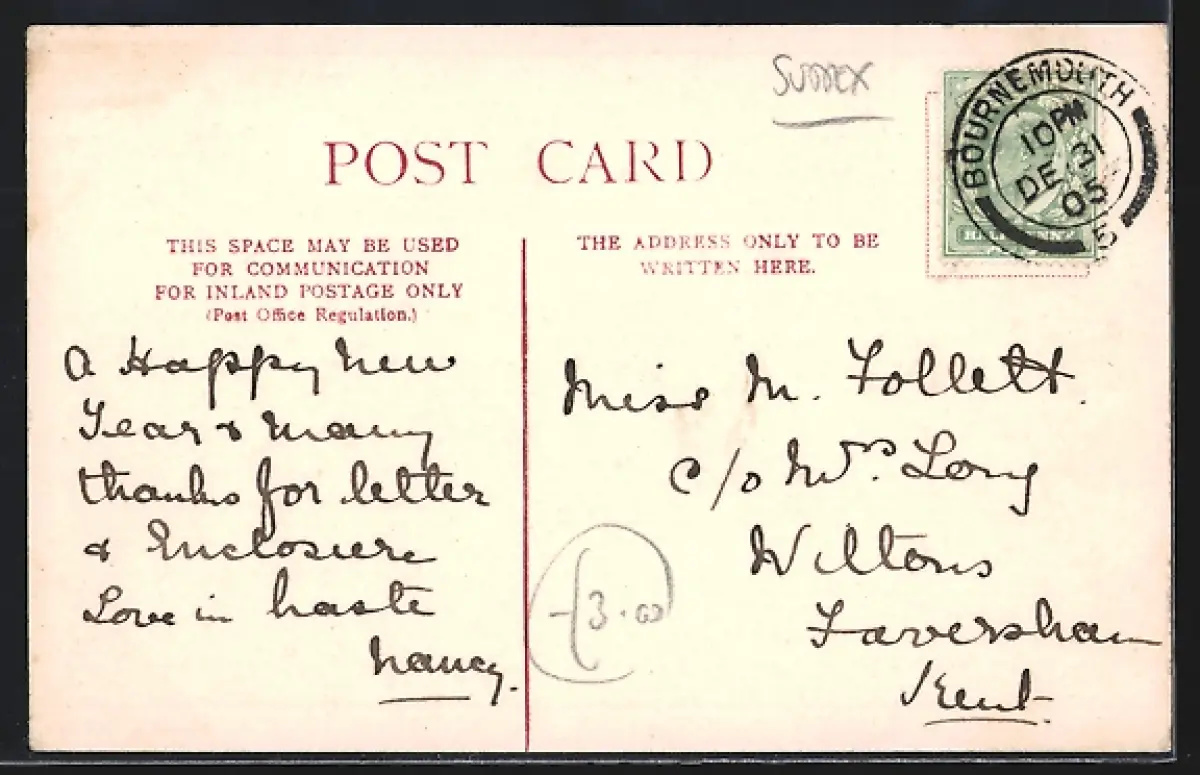 SUSSEX
BOURNEMOUTH
10 PM
DE 31
05
5
HALFPENNY
POST CARD
THIS SPACE MAY BE USED
FOR COMMUNICATION
FOR INLAND POSTAGE ONLY
(Post Office Regulation.)
THE ADDRESS ONLY TO BE
WRITTEN HERE.
A Happy New
Year & many
thanks for letter
& Enclosure
Love in haste
Nancy.
Miss M. Follett.
c/o Mrs. Long
Wiltons
Faversham
Kent.
3.00